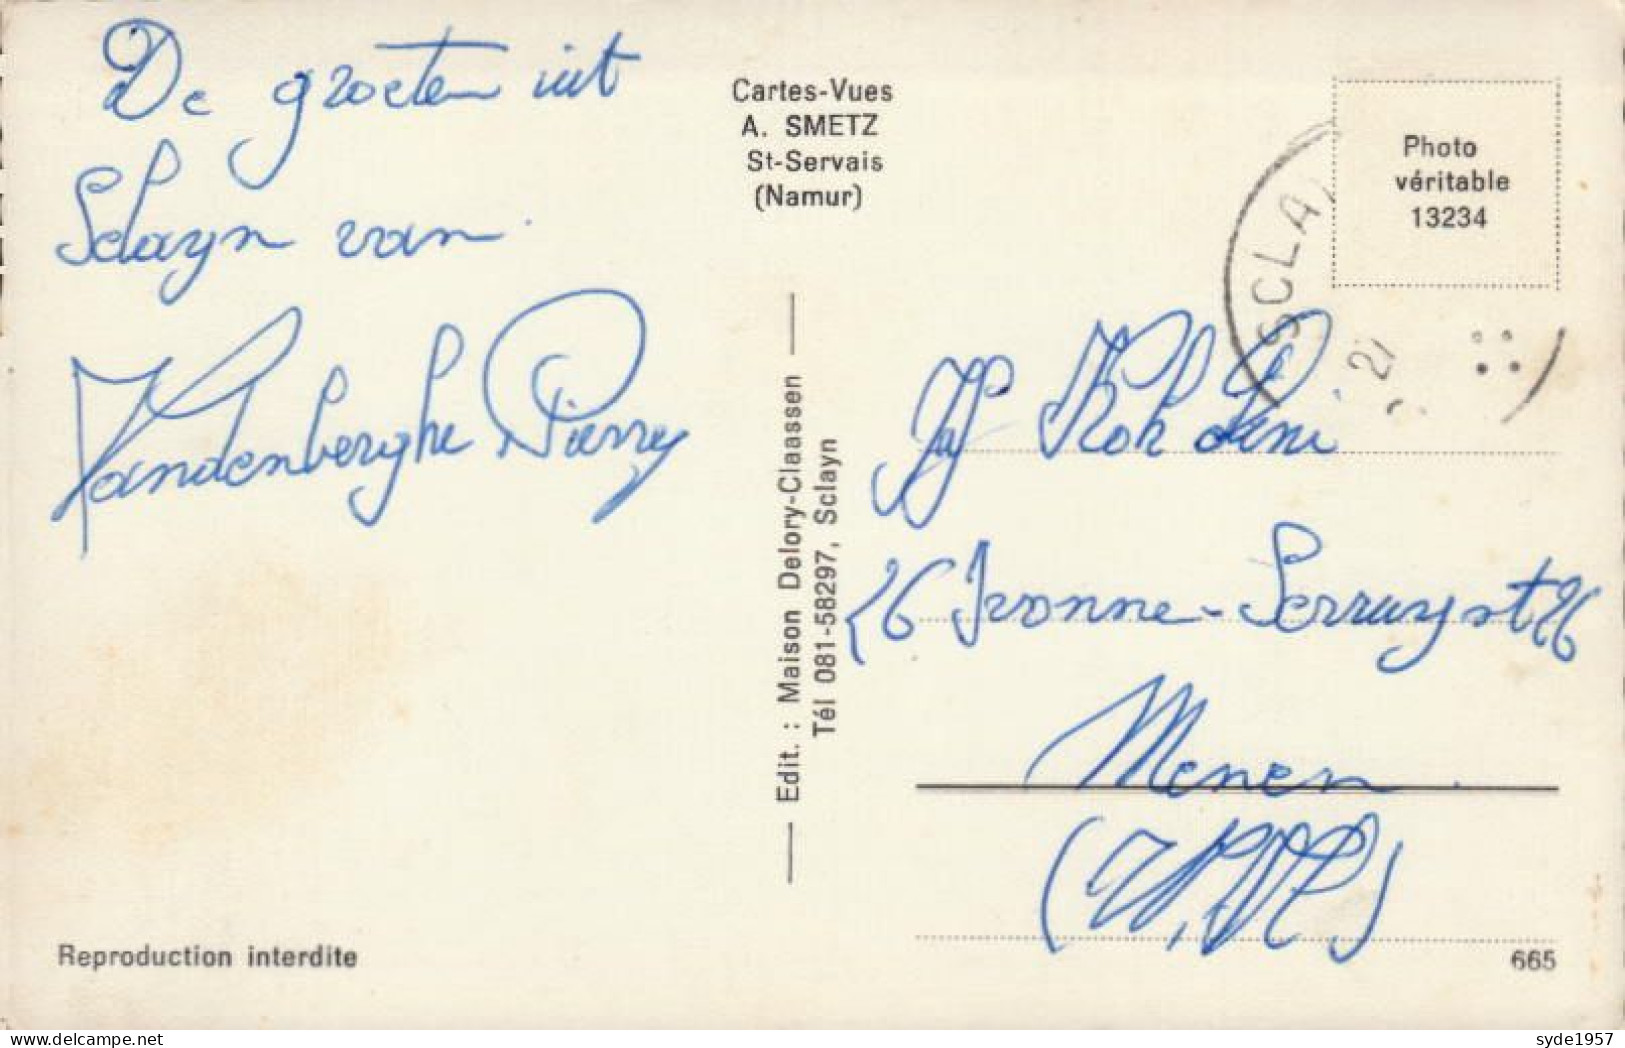 De groeten uit
Sclayn van
Vandenberghe Pierry
Cartes-Vues
A. SMETZ
St-Servais
(Namur)
Photo
véritable
13234
SCLAY
21
Edit. : Maison Delory-Claassen
Tél 081-58297, Sclayn
Kok
26 Ivonne-Serruyst 26
Menen
(W,Vl)
Reproduction interdite
665
syde1957